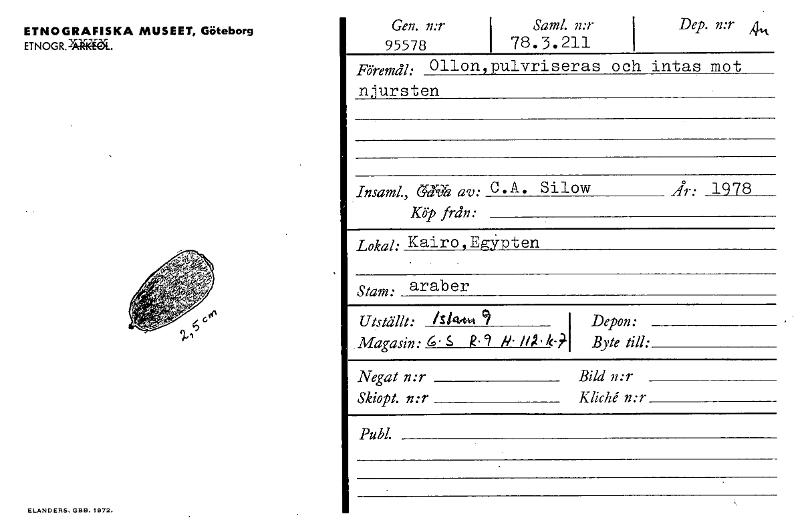 ETNOGRAFISKA MUSEET, Göteborg
ETNOGR. ARKEOL.
2,5 cm
ELANDERS. GBB. 1972.
Gen. n:r Saml. n:r Dep. n:r An
95578 78.3.211
Föremål: Ollon,pulvriseras och intas mot
njursten
Insaml., Gåva av: C.A. Silow År: 1978
Köp från:
Lokal: Kairo,Egypten
Stam: araber
Utställt: Islam 9 Depon:
Magasin: G.S R.9 H.112.k.7 Byte till:
Negat n:r Bild n:r
Skiopt. n:r Kliché n:r
Publ.